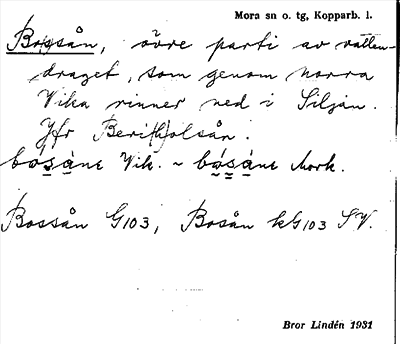 Mora sn o. tg, Kopparb. l.
Bossån, övre parti av vatten-
draget, som genom norra
Vika rinner ned i Siljan.
Jfr Beri(h)olsån.
bo̱sá̱ne Vik. ~ bó̱sá̱ne Mork.
Bossån G103, Bosån kG103 SV.
Bror Lindén 1931